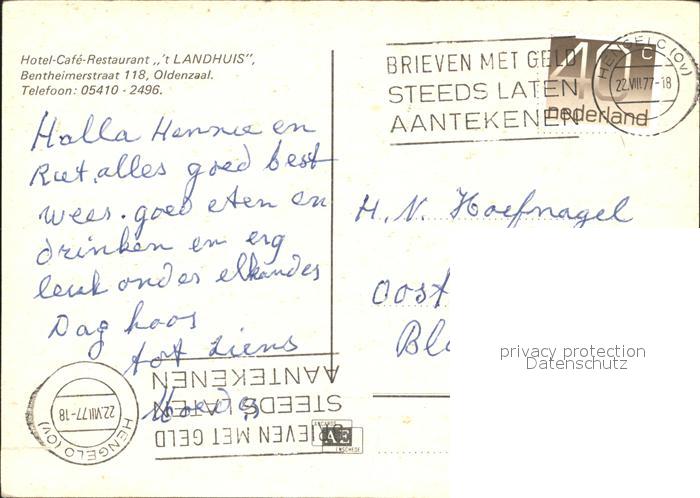 Hotel-Café-Restaurant ,,'t LANDHUIS",
Bentheimerstraat 118, Oldenzaal.
Telefoon: 05410 - 2496.
BRIEVEN MET GELD
STEEDS LATEN
AANTEKENEN
40 c
nederland
HENGELO (OV)
22.VIII.77-18
Halla Hennie en
Riet, alles goed best
wees. goed eten en
drinken en erg
leuk onder elkander
Dag hoos
tot ziens
Moeder
H. N. Hoefnagel
Oost
Bl
privacy protection
Datenschutz
BRIEVEN MET GELD
STEEDS LATEN
AANTEKENEN
HENGELO (OV)
22.VIII.77-18
AE
ENSCHEDE